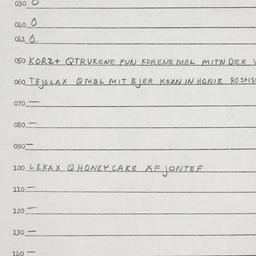 030 0
040 0
041 0
050 KORZ+ QTRUKENE FUN KORENE MEL MITN DER
060 TEJGLAX QMEL MIT EJER KOXN IN HONIK
070 —
080 —
090 —
100 LEKAX QHONEYCAKE AF JONTEF
110 —
120 —
130 —
140 —